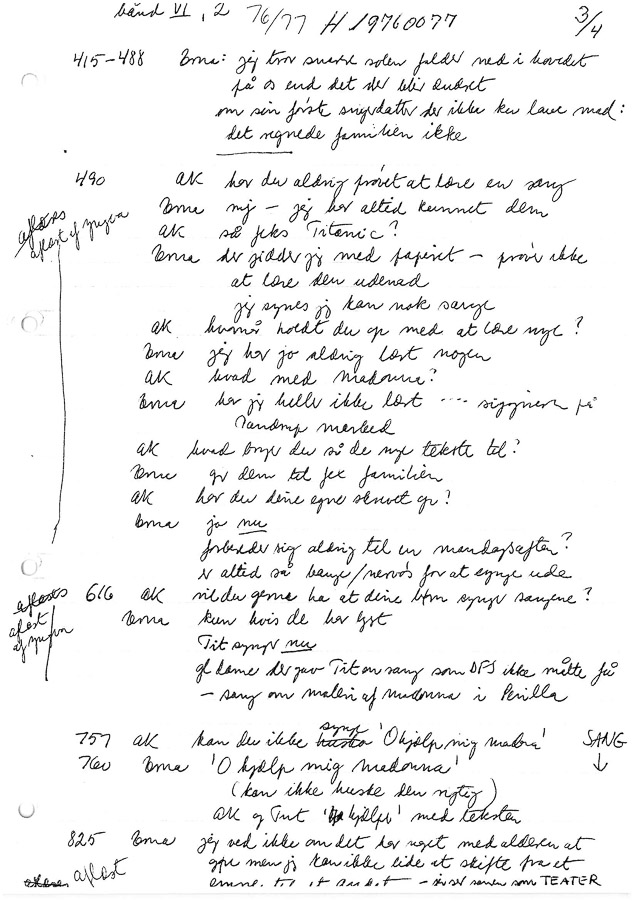 bånd VI, 2 76/77 H 19760077 3/4
415-488 Erna: jeg tror snarere solen falder ned i hovedet
på os end det der blir ændret
om sin første svigerdatter der ikke ku lave mad:
det regnede familien ikke
490 AK har du aldrig prøvet at lære en sang
Erna nej - jeg har altid kunnet dem
aflæses
aflæst af
AK så feks Titanic?
Erna der sidder jeg med papiret - prøver ikke
at lære den udenad
jeg synes jeg kan nok sange
AK hvornår holdt du op med at lære nye?
Erna jeg har jo aldrig lært nogen
AK hvad med Madonna?
Erna har jeg heller ikke lært .... på
marked
AK hvad bruger du så de nye tekster til?
Erna gir dem til fex familien
AK har du dine egne skrevet op?
Erna ja nu
forbereder sig aldrig til en mandagsaften?
er altid så bange/nervøs for at synge ude
aflæses
aflæst
af
616 AK vil du gerne ha at dine børn synger sangene?
Erna kun hvis de har lyst
Tit synger nu
gl dame der gav Tit en sang som DFS ikke måtte få
- sang om maleri af madonna i
757 AK kan du ikke synge 'O hjælp mig madonna' SANG
760 Erna 'O hjælp mig madonna'
(kan ikke huske den rigtig)
AK og Tut 'hjælper' med teksten
825 Erna jeg ved ikke om det har noget med alderen at
aflæst
gøre men jeg kan ikke lide at skifte fra et
emne til et andet - som TEATER